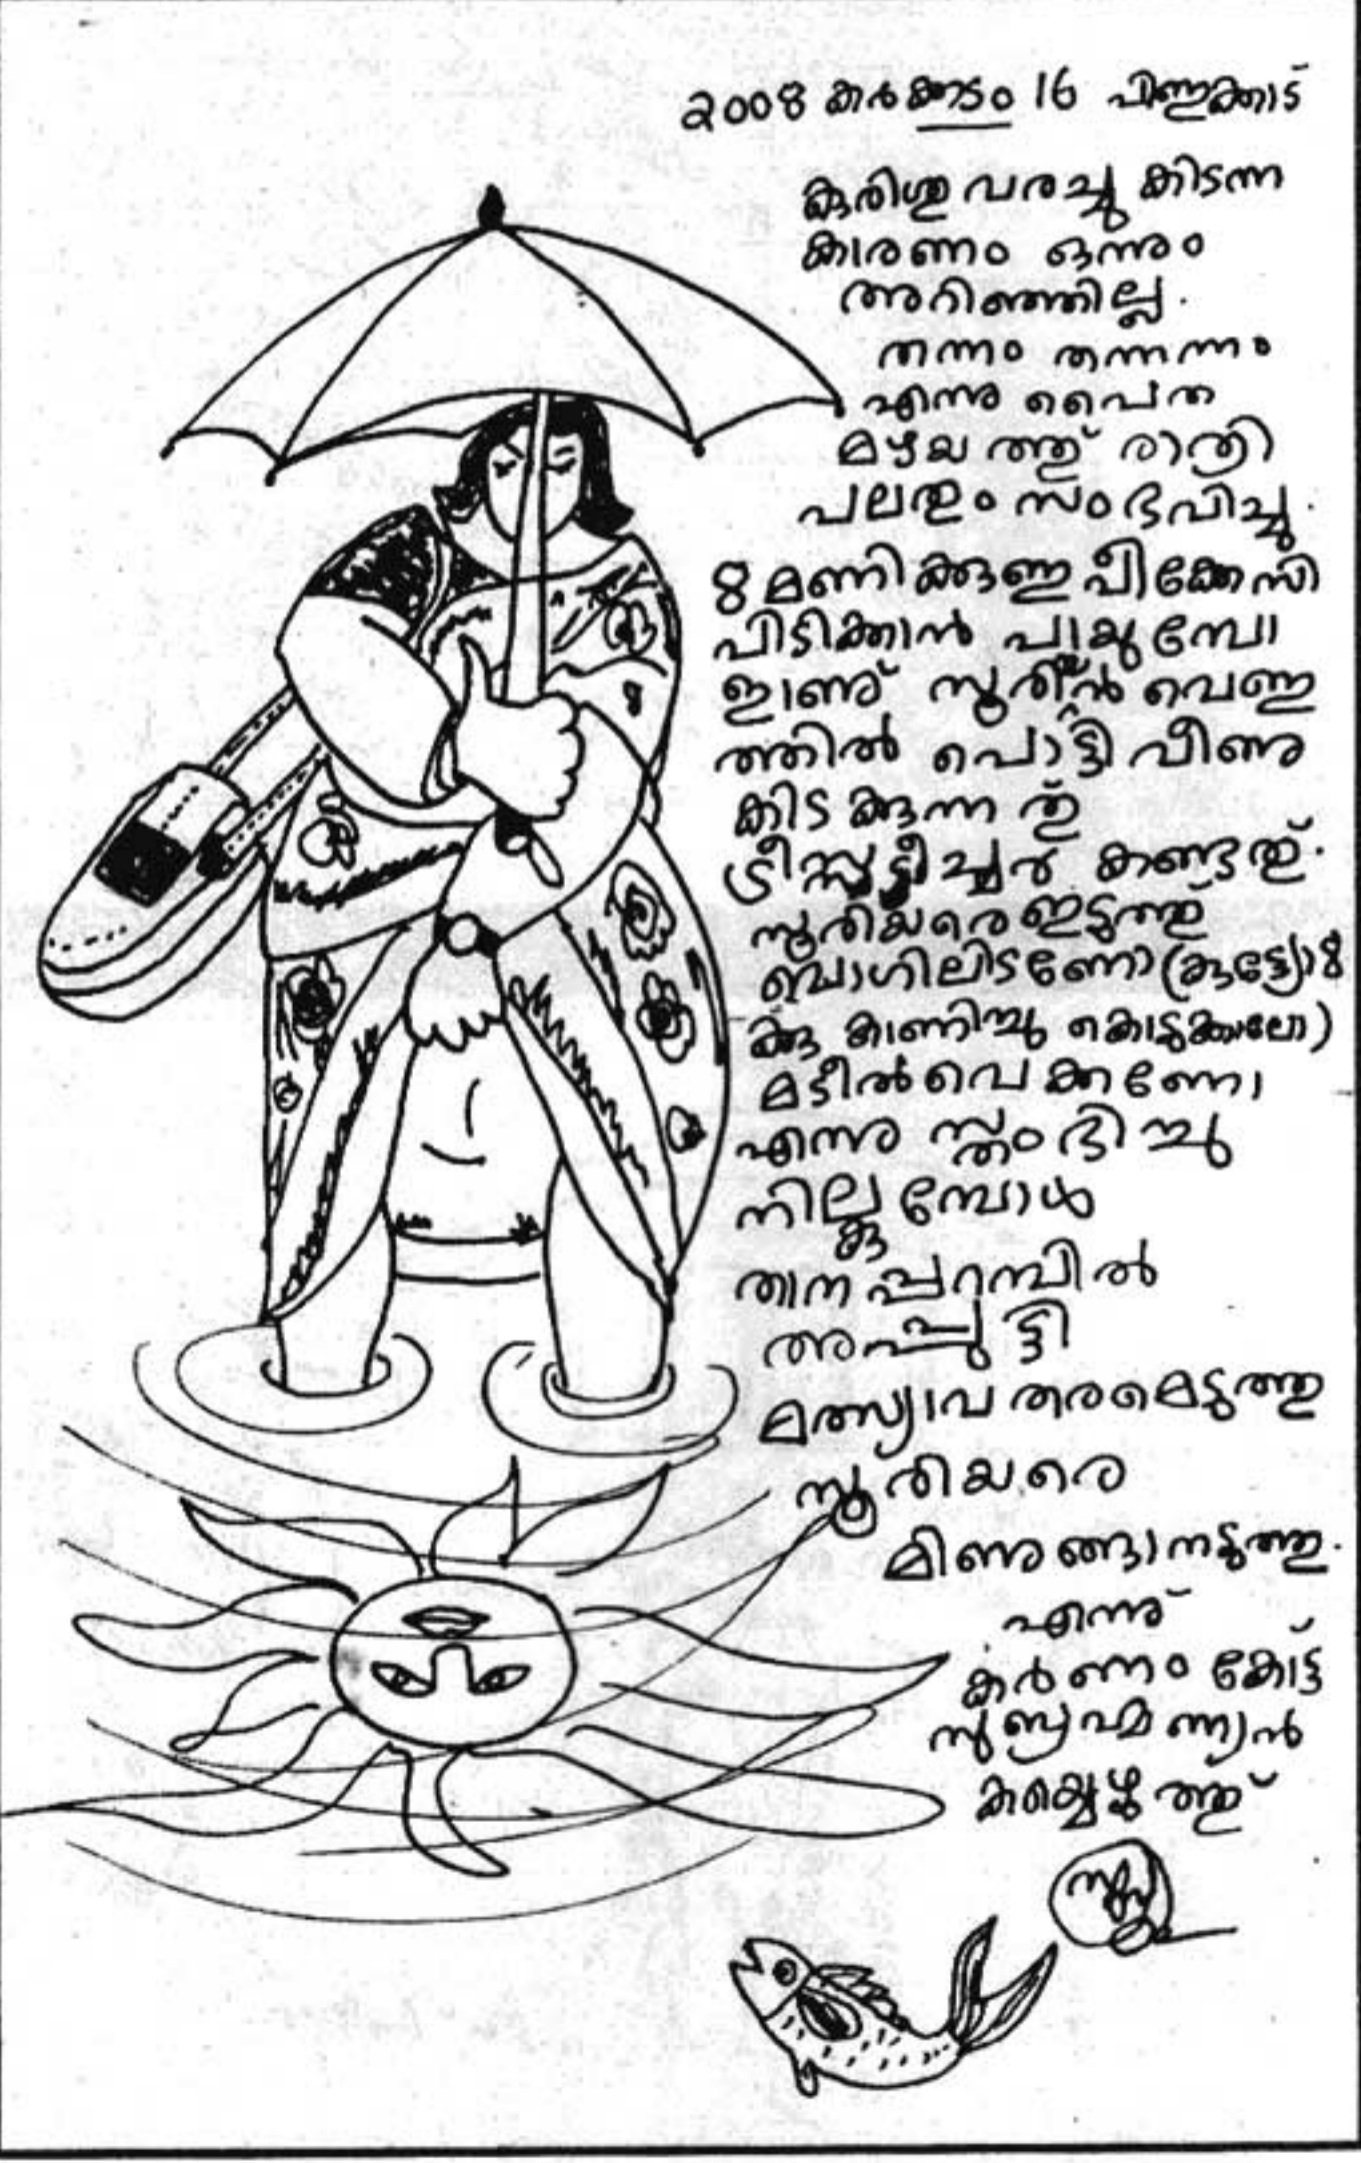 2008 കർക്കടം 16 പിണ്ണക്കാട്
കുരിശു വരച്ചു കിടന്ന
കാരണം ഒന്നും
അറിഞ്ഞില്ല.
തന്നം തന്നന്നം
എന്നു പൈത
മഴയത്ത് രാത്രി
പലതും സംഭവിച്ചു.
8 മണിക്കുള്ള പീക്കേസി
പിടിക്കാൻ പായുമ്പോ
ഇാണു് സൂരീൻ വെള്ള
ത്തിൽ പൊട്ടി വീണു
കിടക്കുന്നതു്
ട്രീസ്സട്ടീച്ചർ കണ്ടതു്.
സൂരിയരെ ഇട്ടത്തു്
ബാഗിലിടണോ (കുട്ട്യോൾ
ക്കു കാണിച്ചു കൊടുക്കാലോ)
മടീൽ വെക്കണോ
എന്നു സ്തംഭിച്ചു
നില്ക്കുമ്പോൾ
താനപ്പറമ്പിൽ
അപ്പുട്ടി
മത്സ്യാവതരമെടുത്തു
സൂരിയരെ
മിണുങ്ങാനടുത്തു.
എന്നു്
കർണംകോട്ട്
സുബ്രഹ്മണ്യൻ
കയ്യെഴുത്തു്